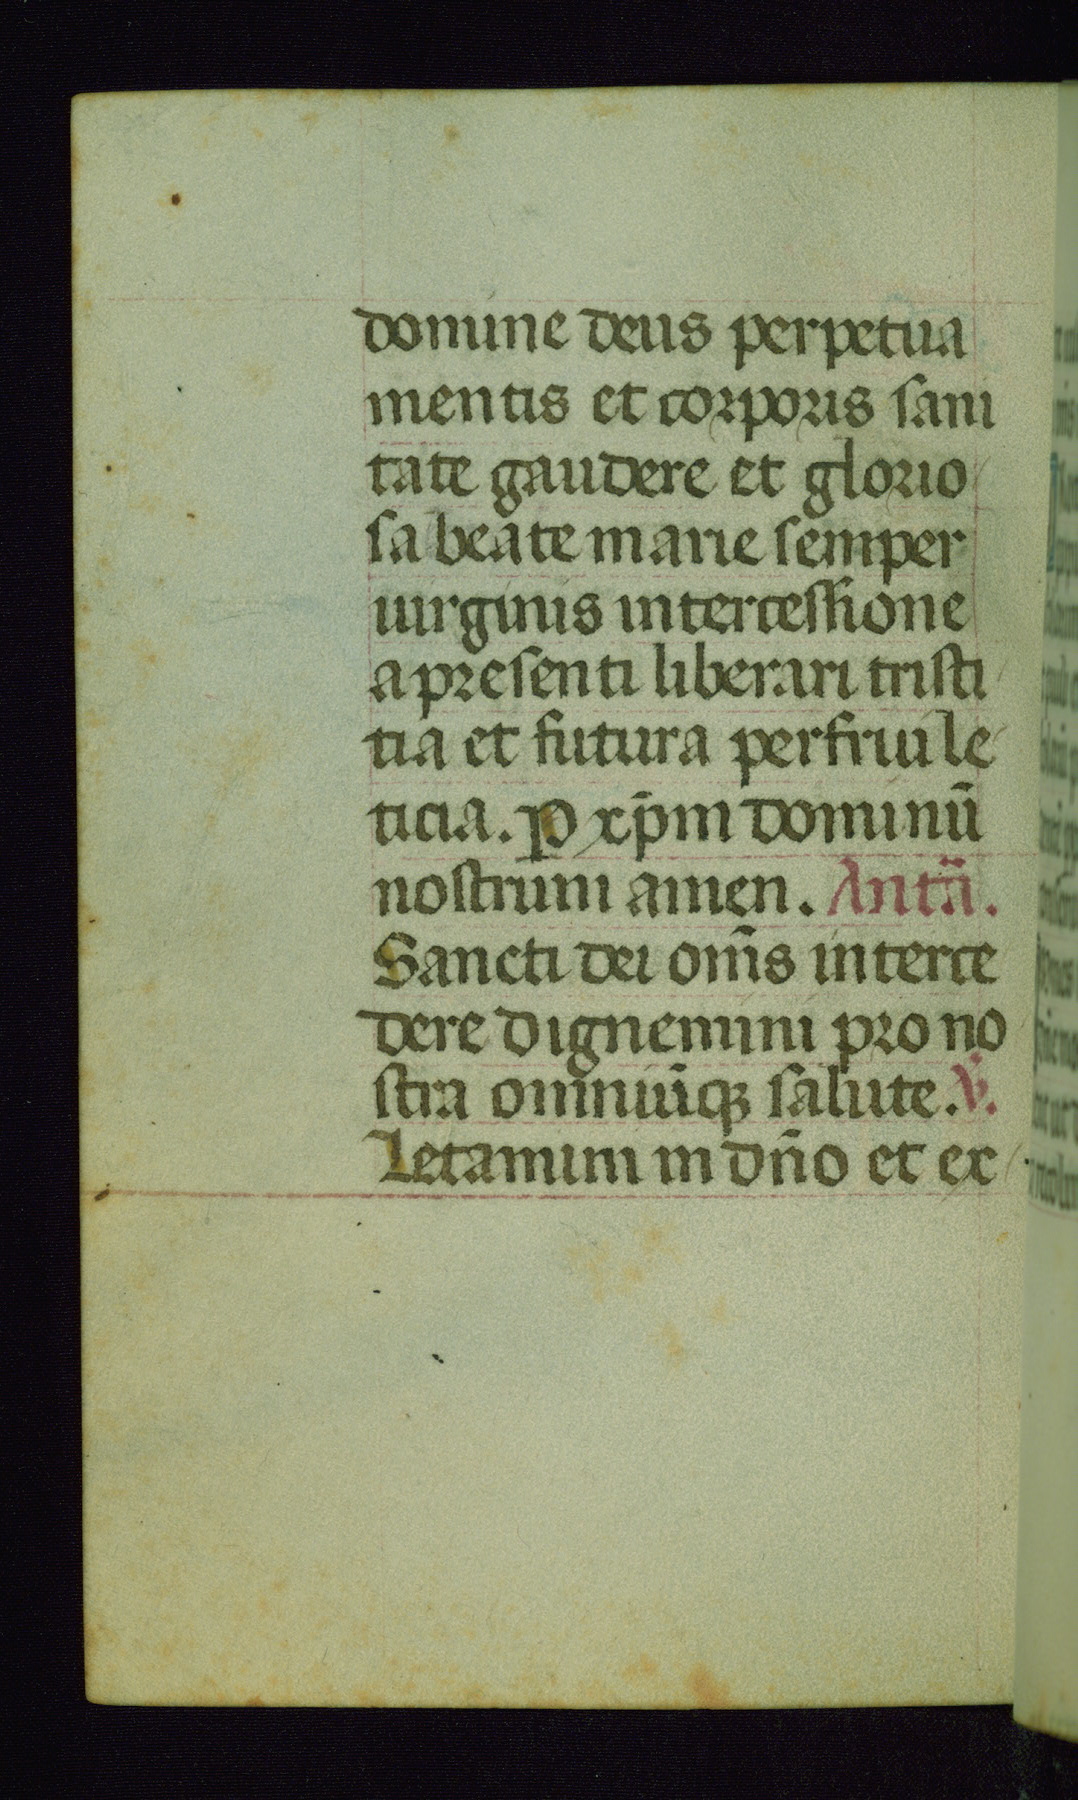 domine deus perpetua
mentis et corporis sani
tate gaudere et glorio
sa beate marie semper
uirginis intercessione
a presenti liberari tristi
tia et futura perfrui le
ticia. p xp̄m dominū
nostrum amen. Antā.
Sancti dei om̄s interce
dere dignemini pro no
stra omniūqꝫ salute. v̄.
Letamini in dn̄o et ex